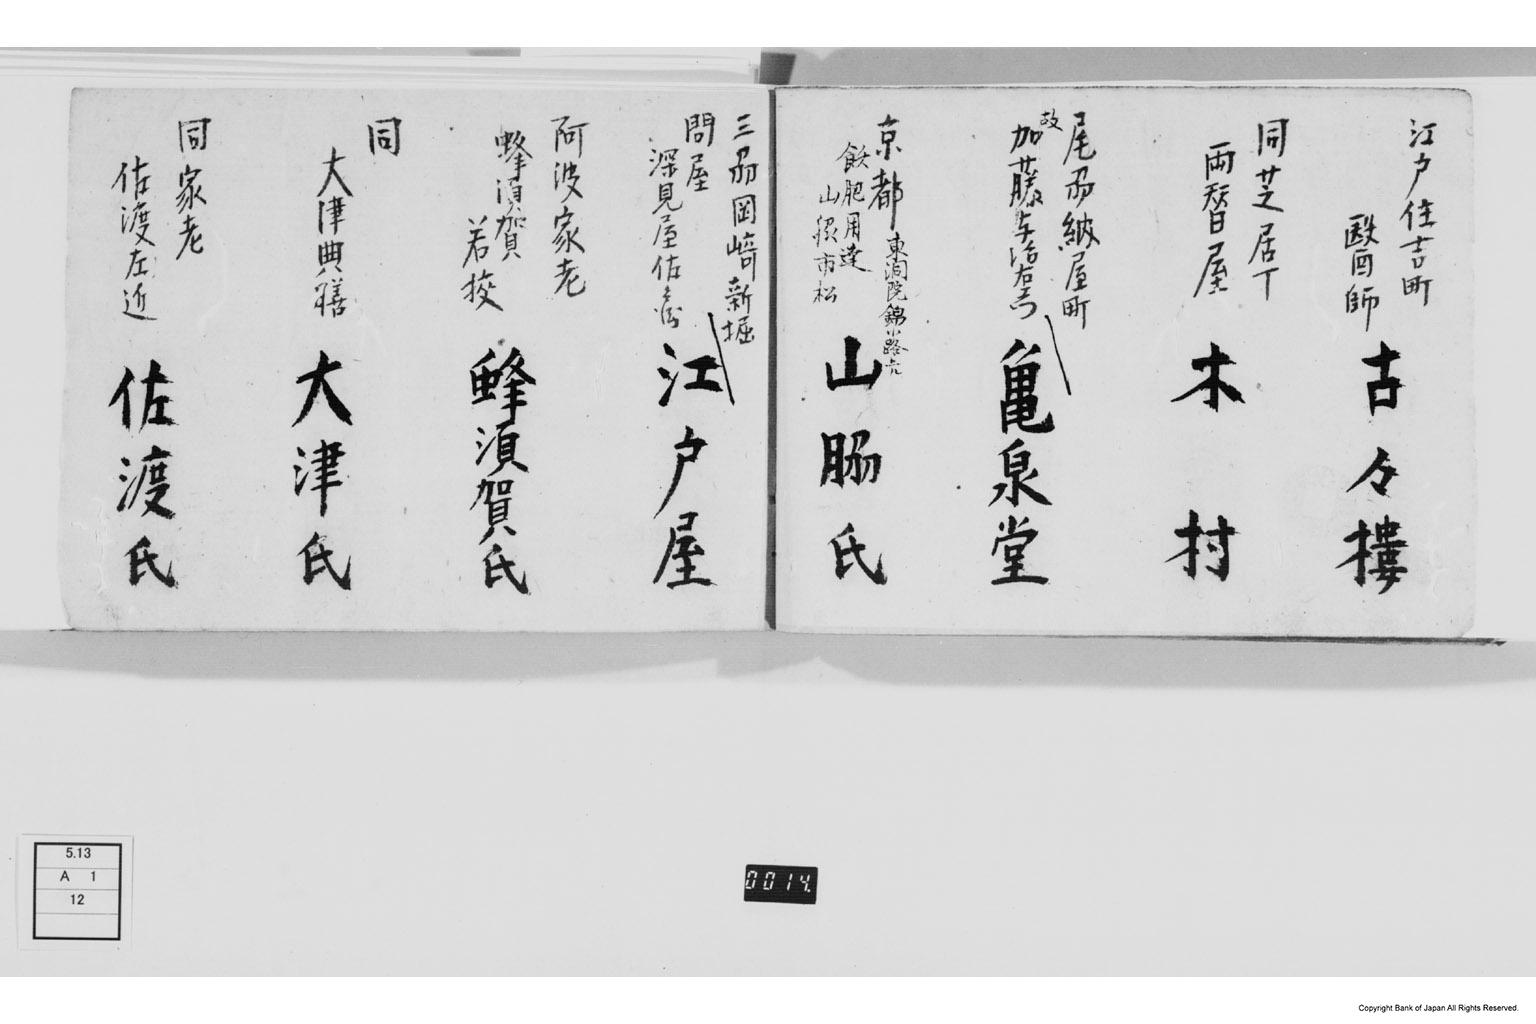 江戸住吉町
醫師
古々樓
同芝居丁
両替屋
木村
尾州納屋町
故
加藤与治右衛門
亀泉堂
京都
東洞院錦小路上
飫肥用達
山
市松
山脇氏
三州岡崎新堀
問屋
深見屋佐兵衛
江戸屋
阿波家老
蜂須賀
若狭
蜂須賀氏
同
大津典膳
大津氏
同家老
佐渡左近
佐渡氏
5.13
A 1
12
0014
Copyright Bank of Japan All Rights Reserved.